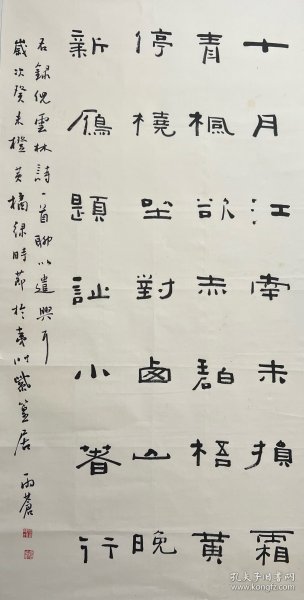 十月江南未損霜
青楓欲赤碧梧黄
停橈坐對鹵山晚
新鴈題詩小著行
右錄倪雲林詩一首聊以遣興耳
歲次癸未橙黄橘綠時節於夷門紫篁居 雨蒼
孔夫子旧书网